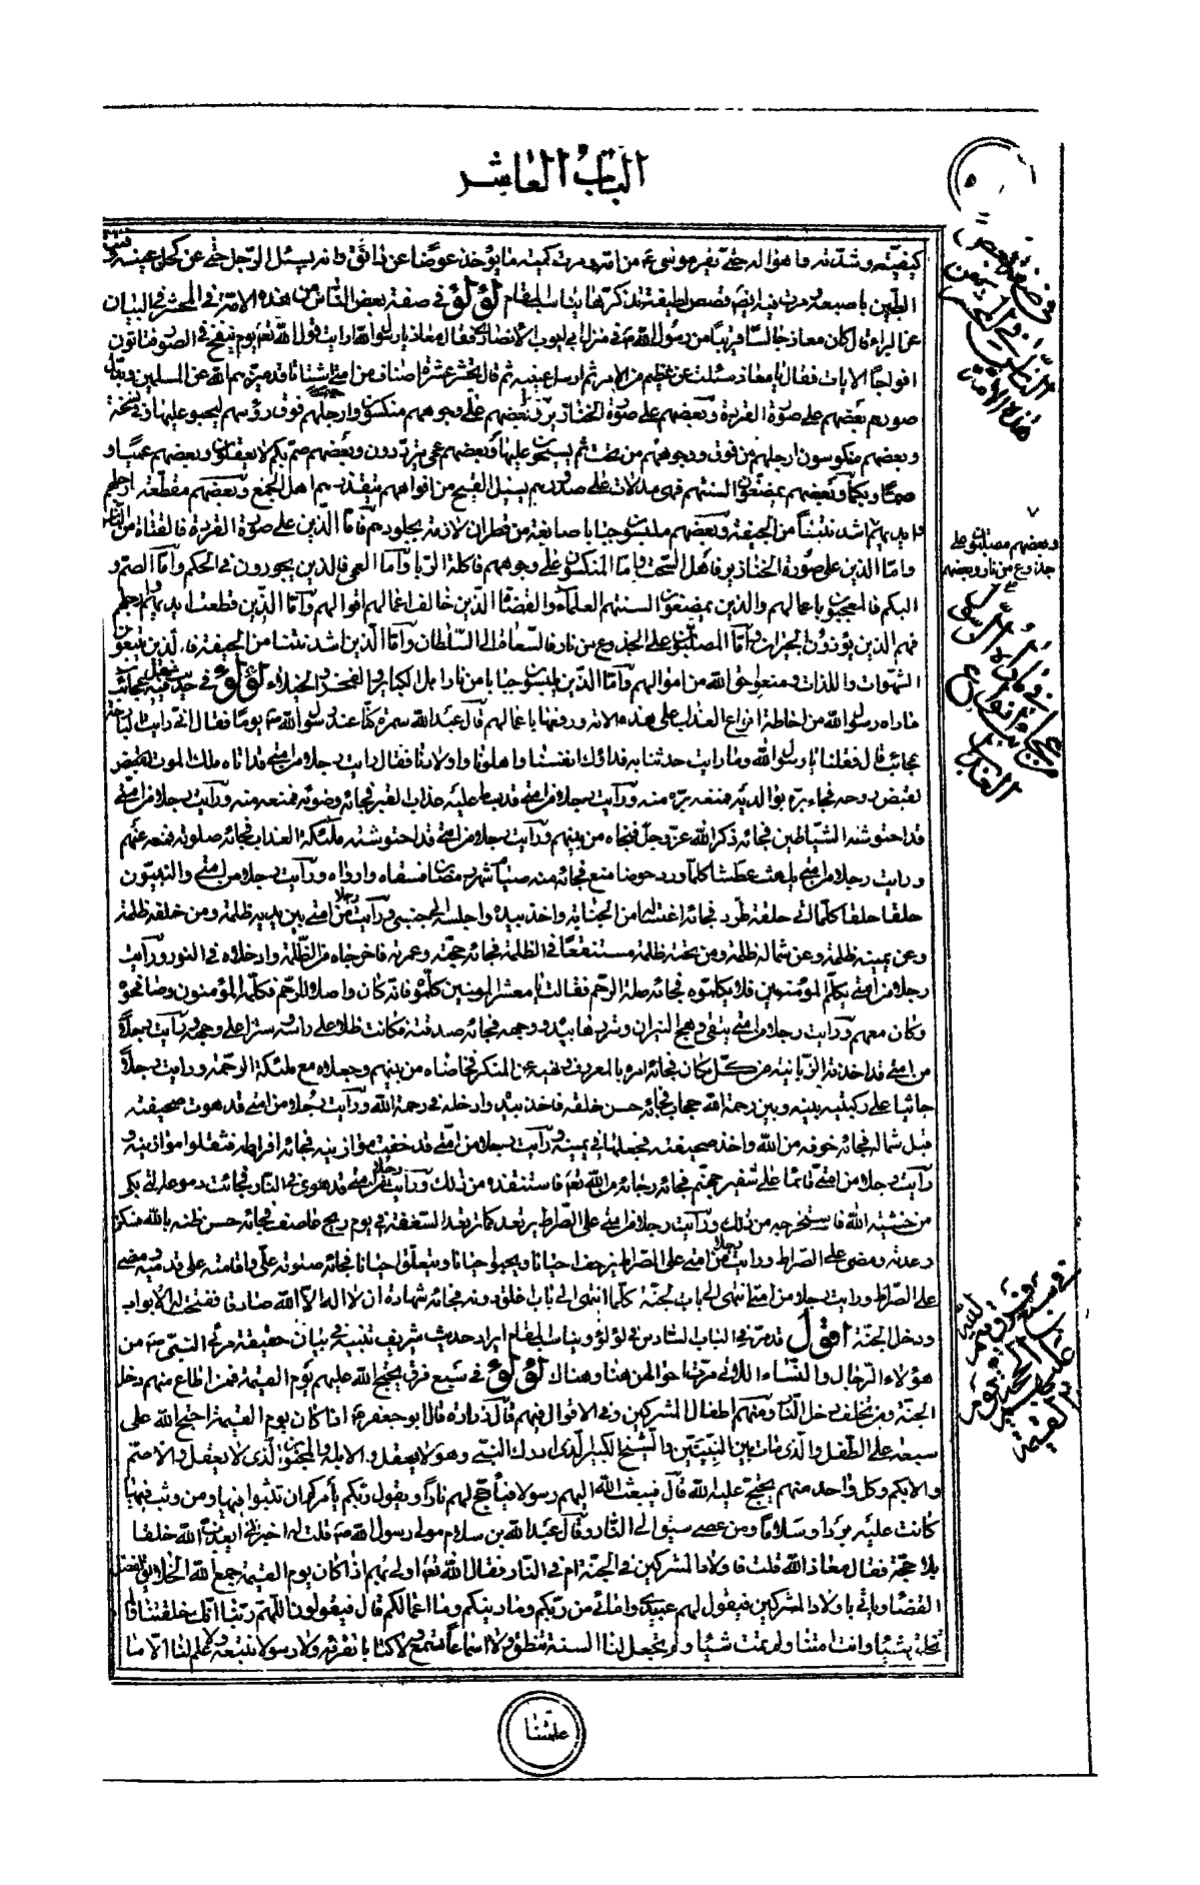 الباب العاشر
كيفيته وشدته واهواله حتى نفر موسى ع من اثره ومرت كمية ما يؤخذ عوضا عن دانق وانه يسئل الرجل حتى عن كحل عينيه وفت
الطين باصبعه ومرت فيه ايضا قصص لطيفة تذكرها يناسب المقام لؤلؤ في صفة بعض الناس من هذه الامة في المحشر في البيان
عن البراء قال كان معاذ جالسا قريبا من رسول الله ص في منزل ابي ايوب الانصاري فقال معاذ يا رسول الله ارايت قول الله تعم يوم ينفخ في الصور فتاتون
افواجا الايات فقال يا معاذ سئلت عن عظيم من الامر ثم ارسل عينيه ثم قال يحشر عشرة اصناف من امتي اشتاتا قد ميزهم الله من المسلمين وبدل
صورهم بعضهم على صورة القردة وبعضهم على صورة الخنازير وبعضهم على وجوههم منكسون وارجلهم فوق رؤسهم ليحبو عليها وفي نسخة
وبعضهم منكوسون ارجلهم من فوق ووجوههم من تحت ثم يسحبون عليها وبعضهم عمي يترددون وبعضهم صم بكم لا يعقلون وبعضهم عميا و
صما وبكما وبعضهم يمضغون السنتهم فهي مدلات على صدورهم يسيل القيح من افواههم يتقذرهم اهل الجمع وبعضهم مقطعة ارجلهم
وايديهم اشد نتنا من الجيفة وبعضهم ملبسون جبابا صابغة من قطران لازمة بجلودهم فاما الذين على صورة القردة فالقتاة من الناس
واما الذين على صورة الخنازير فاهل السحت واما المنكسون على وجوههم فاكلة الربا واما العمي فالذين يجورون في الحكم واما الصم و
البكم فالمعجبون باعمالهم والذين يمضغون السنتهم العلماء والقضاة الذين خالف اعمالهم اقوالهم واما الذين قطعت ايديهم وارجلهم
فهم الذين يؤذون الجيران واما المصلبون على الجذوع من نار فالسعاة الى السلطان واما الذين اشد نتنا من الجيفة فالذين يتبعون
الشهوات واللذات ومنعوا حق الله من اموالهم واما الذين يلبسون جبابا من نار اهل الكباير والفخر والخيلاء لؤلؤ في حديث فيه نقل عجائب
ما راه رسول الله من احاطة انواع العذاب على هذه الامة ورفعها باعمالهم قال عبد الله سمرة كنا عند رسول الله ص يوما فقال اني رايت البارحة
عجائب قال فقلنا يا رسول الله وما رايت حدثنا به فداؤك انفسنا واهلونا واولادنا فقال رايت رجلا من امتي قد اتاه ملك الموت ليقبض
لقبض روحه فجاءه بره بوالديه فمنعه بره منه ورايت رجلا من امتي قد بسط عليه عذاب القبر فجائه وضوئه فمنعه منه ورايت رجلا من امتي
قد احتوشته الشياطين فجائه ذكر الله عز وجل فنجاه من بينهم ورايت رجلا من امتي قد احتوشته ملئكة العذاب فجائه صلوته فمنعه عنهم
ورايت رجلا من امتي يلهث عطشا كلما ورد حوضا منع فجائه منه صيام شهر رمضان فسقاه وارواه ورايت رجلا من امتي والنبيون
حلقا حلقا كلما اتى حلقة طرد فجائه اغتساله من الجنابة واخذ بيده واجلسه الى جنبي ورايت رجلا من امتي بين يديه ظلمة ومن خلفه ظلمة
وعن يمينه ظلمة وعن شماله ظلمة ومن تحته ظلمة مستنقعا في الظلمة فجائه حجته وعمرته فاخرجاه من الظلمة وادخلاه في النور ورايت
رجلا من امتي يكلم المؤمنين فلا يكلموه فجائه صلة الرحم فقالت يا معشر المؤمنين كلموه فانه كان واصلا للرحم فكلمه المؤمنون وصافحوه
وكان معهم ورايت رجلا من امتي يتقي وهج النيران وشررها بيده ووجهه فجائه صدقته فكانت ظلا على راسه وسترا على وجهه ورايت رجلا
من امتي قد اخذته الزبانية من كل مكان فجائه امره بالمعروف ونهيه عن المنكر فخلصاه من بينهم وجعلاه مع ملئكة الرحمة ورايت رجلا
جاثيا على ركبتيه بينه وبين رحمة الله حجاب فجائه حسن خلقه فاخذ بيده وادخله في رحمة الله ورايت رجلا من امتي قد هوت صحيفته
قبل شماله فجائه خوفه من الله واخذ صحيفته فجعلها في يمينه ورايت رجلا من امتي قد خفت موازينه فجائه افراطه فثقلوا موازينه و
رايت رجلا من امتي قائما على شفير جهنم فجائه رجائه من الله تعم فاستنقذه من ذلك ورايت رجلا من امتي قد هوى في النار فجائت دموعه التي بكى
من خشية الله فاستخرجه من ذلك ورايت رجلا من امتي على الصراط يرتعد كما ترتعد السعفة في يوم ريح عاصف فجائه حسن ظنه بالله فسكن
رعدته ومضى على الصراط ورايت رجلا من امتي على الصراط يزحف احيانا ويحبو احيانا ويتعلق احيانا فجائه صلوته علي واقامته على قدميه ومضى
على الصراط ورايت رجلا من امتي انتهى الى باب الجنة كلما انتهى الى باب غلق دونه فجائه شهادة ان لا اله الا الله صادقا ففتحت له الابواب
ودخل الجنة اقول قد مر في الباب السادس في لؤلؤ ويناسب المقام ايراد حديث شريف تنبيه في بيان حقيقة مرئي النبي ص من
هؤلاء الرجال والنساء اللاتي مرت احوالهن هنا وهناك لؤلؤ في سبع فرق يحتج الله عليهم يوم القيمة فمن اطاع منهم دخل
الجنة ومن تخلف دخل النار ومنهم اطفال المشركين وفي الاقوال فيهم قال زرارة قال ابو جعفر ع اذا كان يوم القيمة احتج الله على
سبعة على الطفل والذي مات بين النبيين والشيخ الكبير الذي ادرك النبي وهو لا يعقل والابله والمجنون الذي لا يعقل والاصم
والابكم وكل واحد منهم يحتج على الله قال فيبعث الله اليهم رسولا فيأجج لهم نارا ويقول ربكم يأمركم ان تثبوا فيها ومن وثب فيها
كانت عليه بردا وسلاما ومن عصى سيق الى النار وقال عبد الله بن سلام مولى رسول الله ص قلت له اخبرني ايعذب الله خلقا
بلا حجة فقال معاذ الله قلت فاولاد المشركين في الجنة ام في النار فقال الله تعم اولى بهم اذا كان يوم القيمة جمع الله الخلائق لفصل
القضاء ويأتي باولاد المشركين فيقول لهم عبيدي وامائي من ربكم وما دينكم وما اعمالكم قال فيقولون اللهم ربنا انت خلقتنا ولم
نخلق شيئا وانت امتنا ولم نمت شيئا ولم تجعل لنا السنة تنطق ولا اسماعا تسمع ولا كتابا نقرؤه ولا رسولا نتبعه ولا علم لنا الا ما
علمتنا
في صفة بعض
الناس في المحشر من
هذه الامة
وبعضهم مصلبون على
جذوع من نار وبعضهم
عجائب في ما راه الرسول
من انواع
العذاب